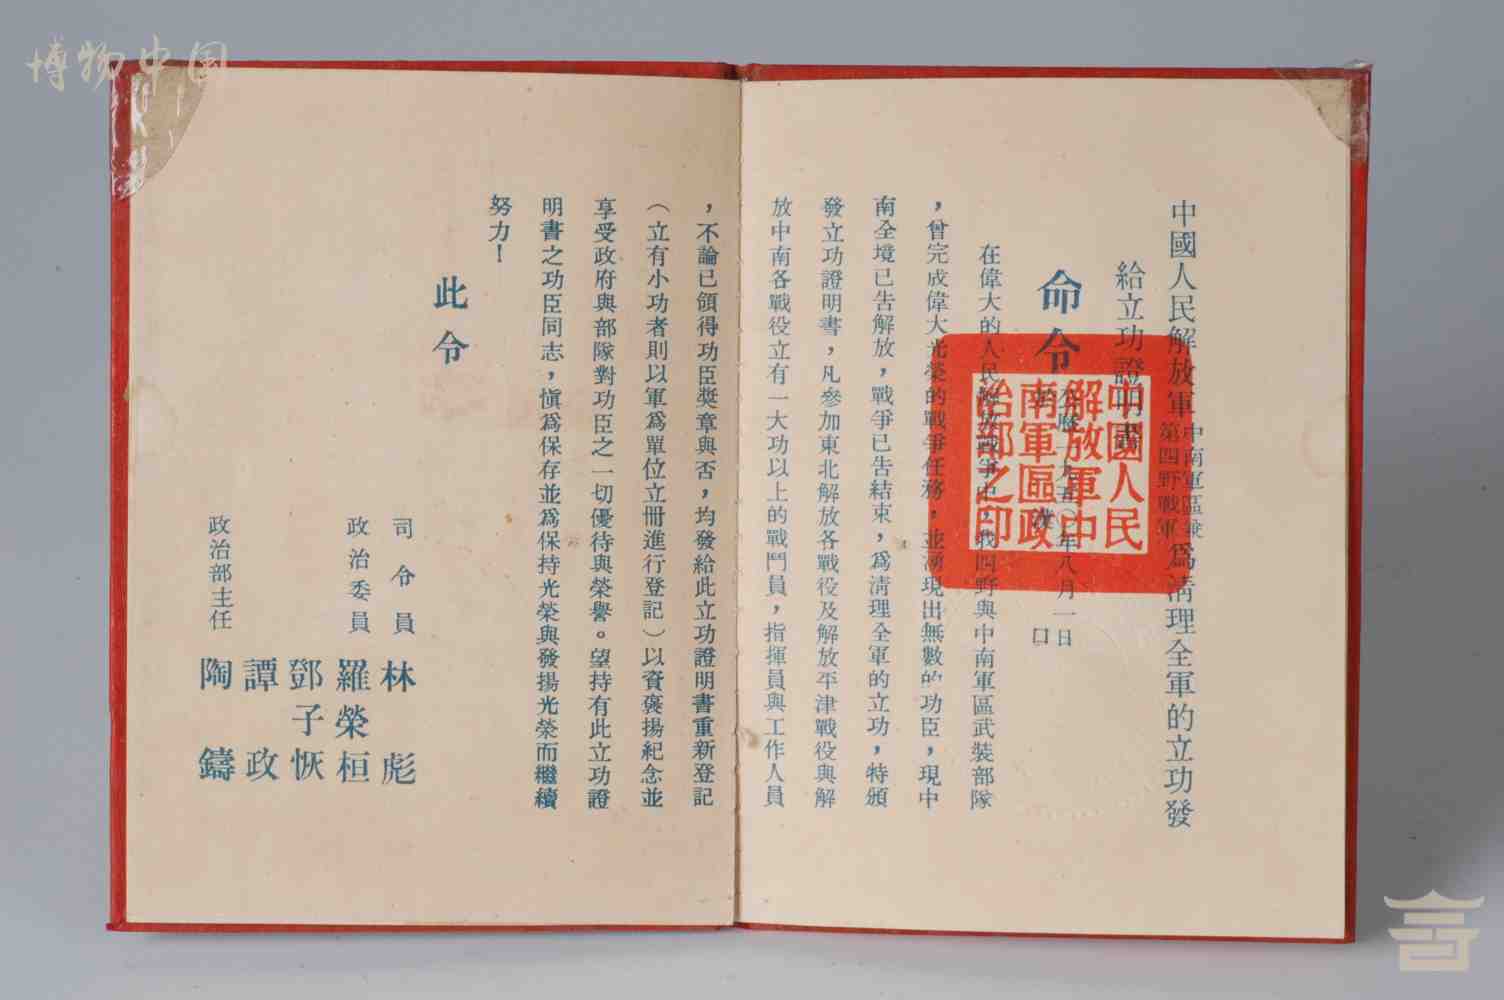 博物中国
中國人民解放軍中南軍區兼第四野戰軍為清理全軍的立功發
給立功證明書
命令
公曆一九五〇年八月一日
於漢口
在偉大的人民解放戰爭中，我四野與中南軍區武裝部隊
，曾完成偉大光榮的戰爭任務，並湧現出無數的功臣，現中
南全境已告解放，戰爭已告結束，為清理全軍的立功，特頒
發立功證明書，凡參加東北解放各戰役及解放平津戰役與解
放中南各戰役立有一大功以上的戰鬥員，指揮員與工作人員
，不論已領得功臣獎章與否，均發給此立功證明書重新登記
（立有小功者則以軍為單位立冊進行登記）以資褒揚紀念並
享受政府與部隊對功臣之一切優待與榮譽。望持有此立功證
明書之功臣同志，慎為保存並為保持光榮與發揚光榮而繼續
努力！
此令
司令員 林彪
政治委員 羅榮桓
鄧子恢
譚政
政治部主任 陶鑄
中國人民
解放軍中
南軍區政
治部之印